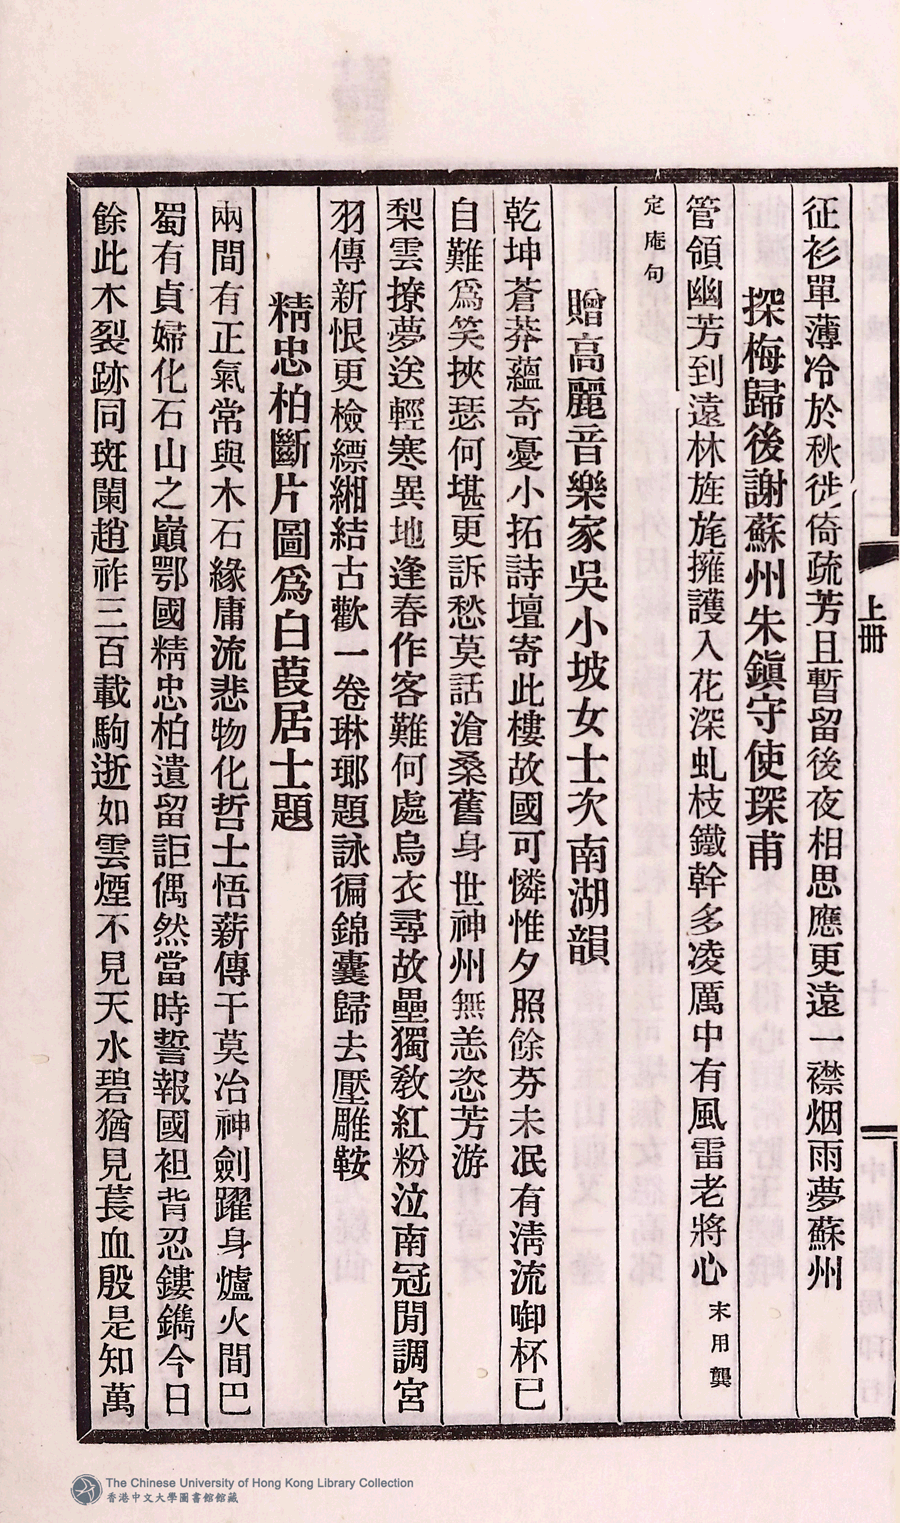 上册
征衫單薄冷於秋徙倚疏芳且暫留後夜相思應更遠一襟烟雨夢蘇州
探梅歸後謝蘇州朱鎮守使琛甫
管領幽芳到遠林旌旄擁護入花深虬枝鐵幹多凌厲中有風雷老將心末用龔
定庵句
贈高麗音樂家吳小坡女士次南湖韻
乾坤蒼莽蘊奇憂小拓詩壇寄此樓故國可憐惟夕照餘芬未泯有清流啣杯已
自難爲笑挾瑟何堪更訴愁莫話滄桑舊身世神州無恙恣芳游
梨雲撩夢送輕寒異地逢春作客難何處烏衣尋故壘獨教紅粉泣南冠閒調宮
羽傳新恨更檢縹緗結古歡一卷琳瑯題詠徧錦囊歸去壓雕鞍
精忠柏斷片圖爲白葭居士題
兩間有正氣常與木石緣庸流悲物化哲士悟薪傳干莫冶神劍躍身爐火間巴
蜀有貞婦化石山之巔鄂國精忠柏遺留詎偶然當時誓報國袒背忍鏤鐫今日
餘此木裂跡同斑闌趙祚三百載駒逝如雲煙不見天水碧猶見萇血殷是知萬
The Chinese University of Hong Kong Library Collection
香港中文大學圖書館館藏